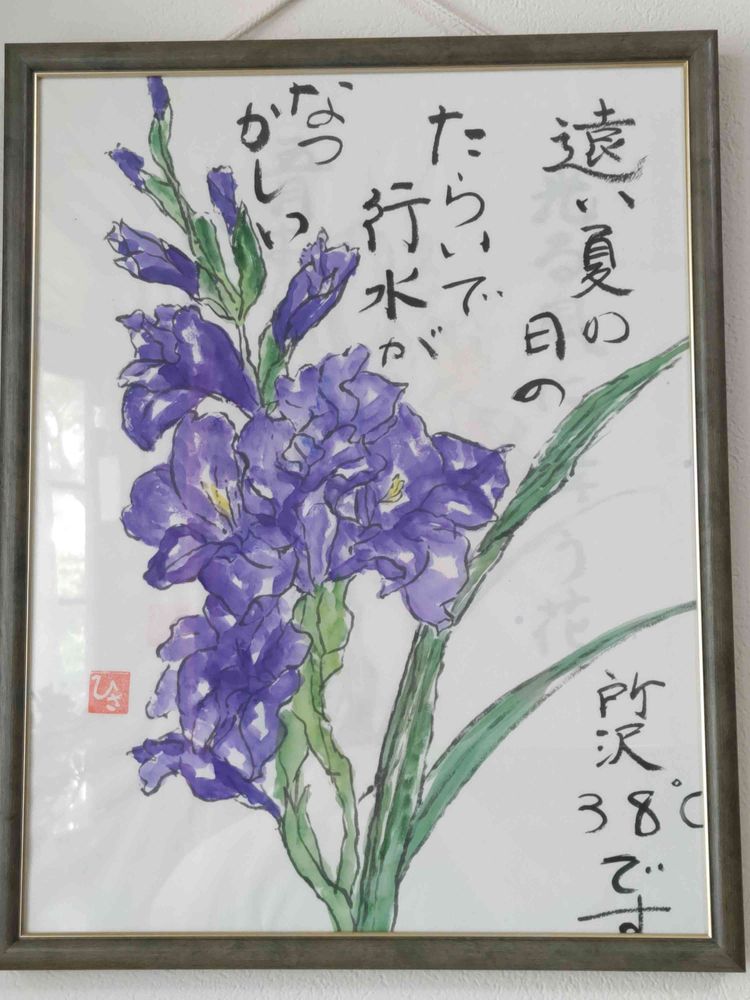 遠い夏の
日の
たらいで
行水が
なつ
かしい
所沢
38℃
です
ひさ